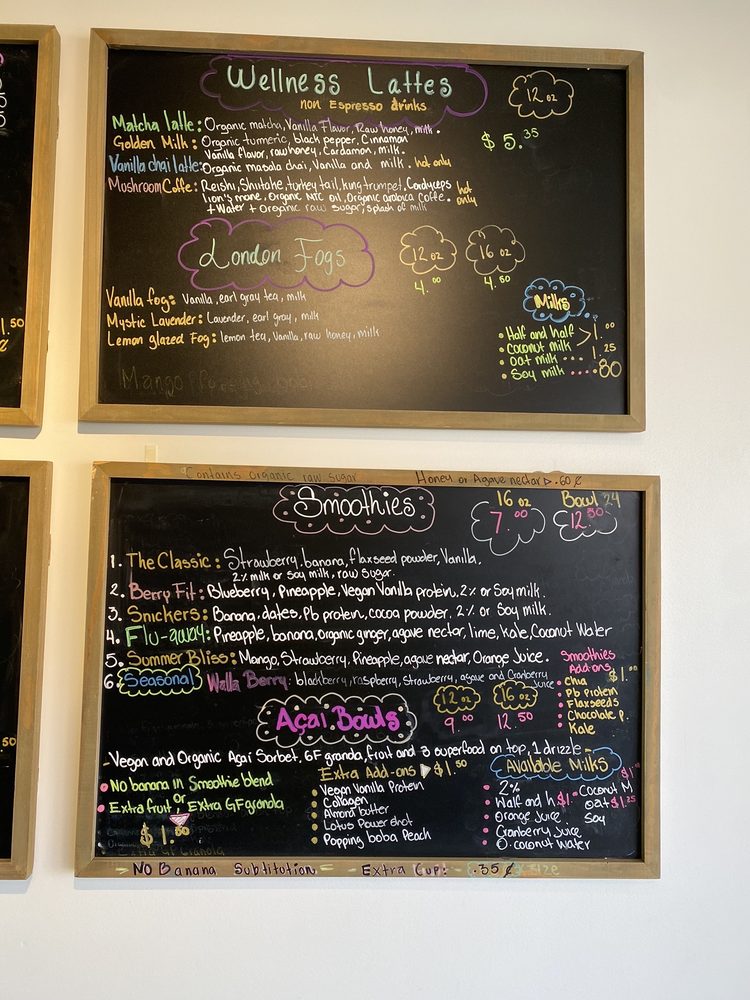 Wellness Lattes
non Espresso drinks
12 oz
Matcha latte: Organic matcha, Vanilla Flavor, Raw honey, milk.
$5.35
Golden Milk: Organic turmeric, black pepper, Cinnamon
Vanilla flavor, raw honey, Cardamon, milk.
Vanilla chai latte: Organic masala chai, Vanilla and milk. hot only
Mushroom Coffe: Reishi, Shiitake, turkey tail, king trumpet, Cordyceps hot
lion's mane, Organic MTC oil, Organic arabica Coffe. only
+ Water + Organic raw sugar, splash of milk
London Fogs
12 oz 16 oz
4.00 4.50
Vanilla fog: Vanilla, earl gray tea, milk
Mystic Lavender: Lavender, earl gray, milk
Lemon glazed Fog: lemon tea, Vanilla, raw honey, milk
Milks
Half and half > 1.00
Coconut milk
Oat milk ... 1.25
Soy milk .... 80
Mango
Contains organic raw sugar
Honey or Agave nectar .60¢
Smoothies
16 oz Bowl 24
7.00 12.50
1. The Classic: Strawberry, banana, flaxseed powder, Vanilla.
2% milk or Soy milk, raw sugar.
2. Berry Fit: Blueberry, Pineapple, Vegan Vanilla protein, 2% or Soy milk.
3. Snickers: Banana, dates, Pb protein, cocoa powder, 2% or Soy milk.
4. Flu-away: Pineapple, banana, organic ginger, agave nectar, lime, Kale, Coconut Water
5. Summer Bliss: Mango, Strawberry, Pineapple, agave nectar, Orange Juice.
6 Seasonal Walla Berry: blackberry, raspberry, strawberry, agave and Cranberry
Juice
Smoothies
Add-ons
$1.00
Chia
Pb Protein
Flaxseeds
Chocolate P.
Kale
Açai Bowls
12 oz 16 oz
9.00 12.50
-Vegan and Organic Açai Sorbet, GF granola, fruit and 3 superfood on top, 1 drizzle-
No banana in Smoothie blend
or
Extra fruit, Extra GF granola
$1.50
Extra Add-ons $1.50
Vegan Vanilla Protein
Collagen
Almond butter
Lotus Power shot
Popping boba Peach
Available Milks
2%
Half and h. $1.
Orange Juice
Cranberry Juice
O. coconut Water
$1
Coconut M
Oat $1.25
Soy
- NO Banana Subtitution - Extra Cup: .35¢